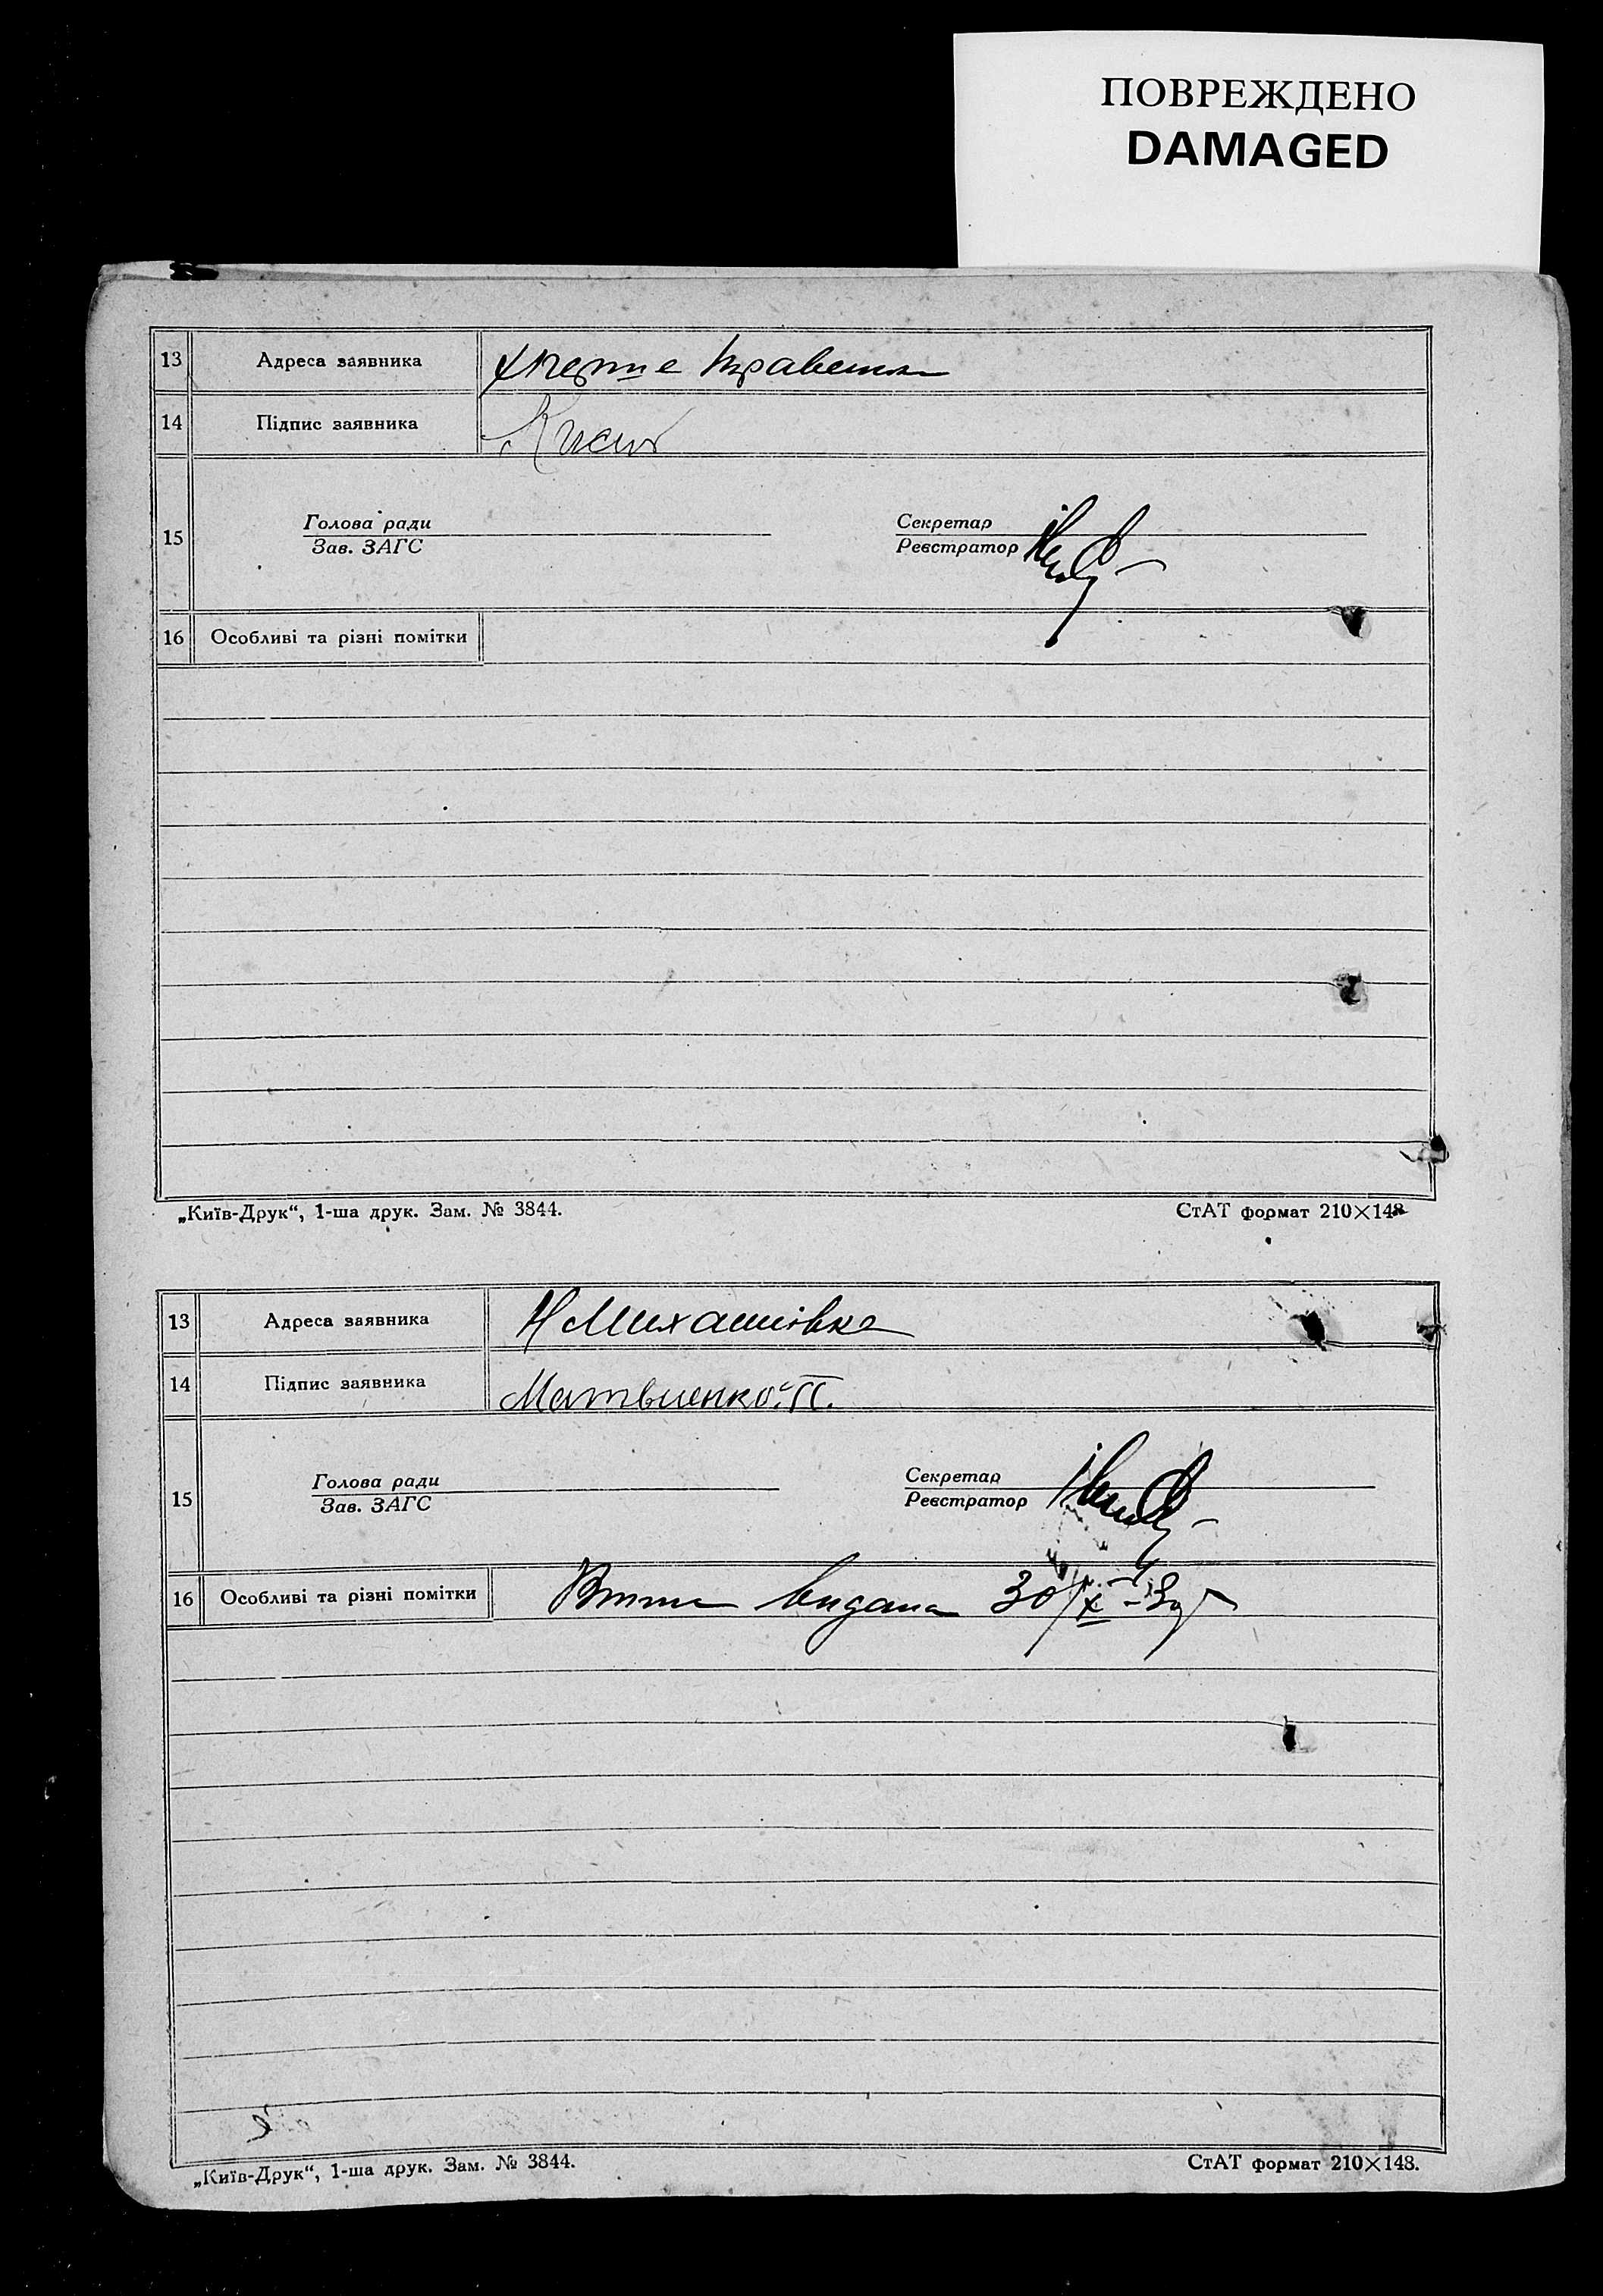 ПОВРЕЖДЕНО
DAMAGED
13 Адреса заявника
14 Підпис заявника
15 Голова ради
Зав. ЗАГС
Секретар
Реєстратор
16 Особливі та різні помітки
„Київ-Друк“, 1-ша друк. Зам. № 3844. СтАТ формат 210×148
13 Адреса заявника Н Михайлівка
14 Підпис заявника Матвиенко П.
15 Голова ради
Зав. ЗАГС
Секретар
Реєстратор
16 Особливі та різні помітки видана 30/X
„Київ-Друк“, 1-ша друк. Зам. № 3844. СтАТ формат 210×148.